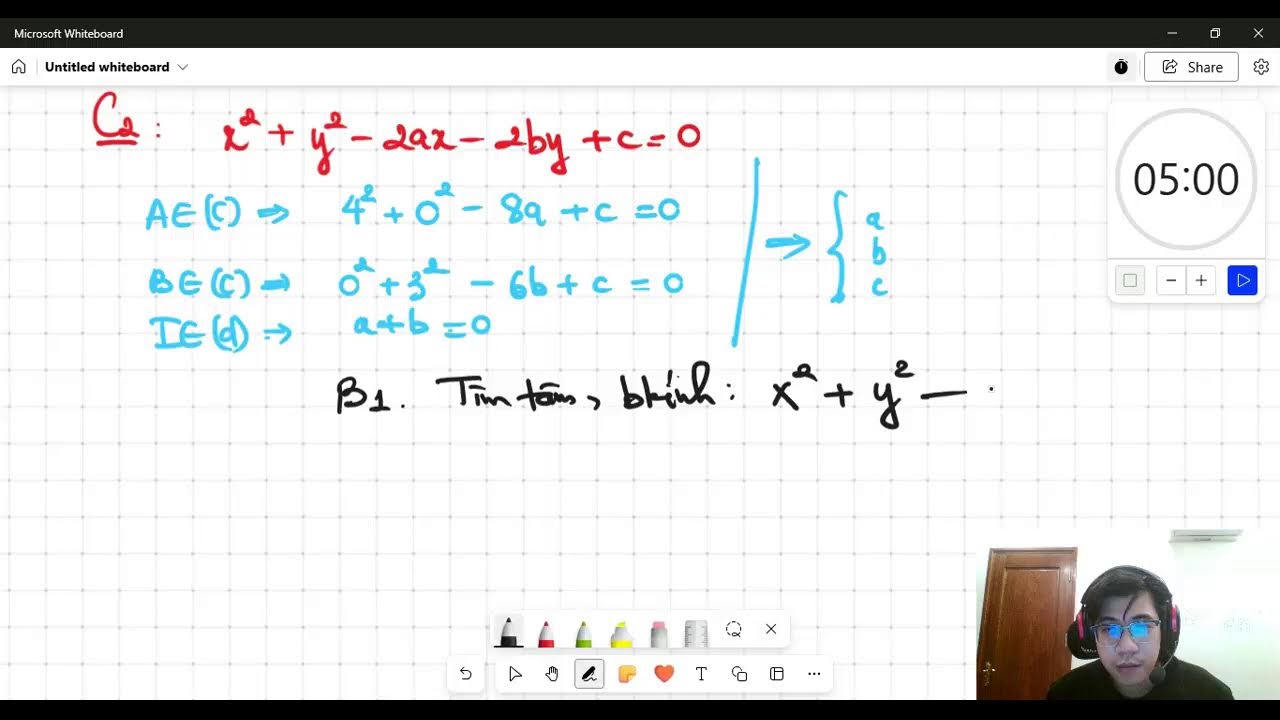 Microsoft Whiteboard
Untitled whiteboard
Share
C2 : x² + y² - 2ax - 2by + c = 0
05:00
A∈(C) ⇒ 4² + 0² - 8a + c = 0
B∈(C) ⇒ 0² + 3² - 6b + c = 0
I∈(d) ⇒ a + b = 0
⇒ { a
b
c
B1. Tìm tâm, bkính: x² + y² —